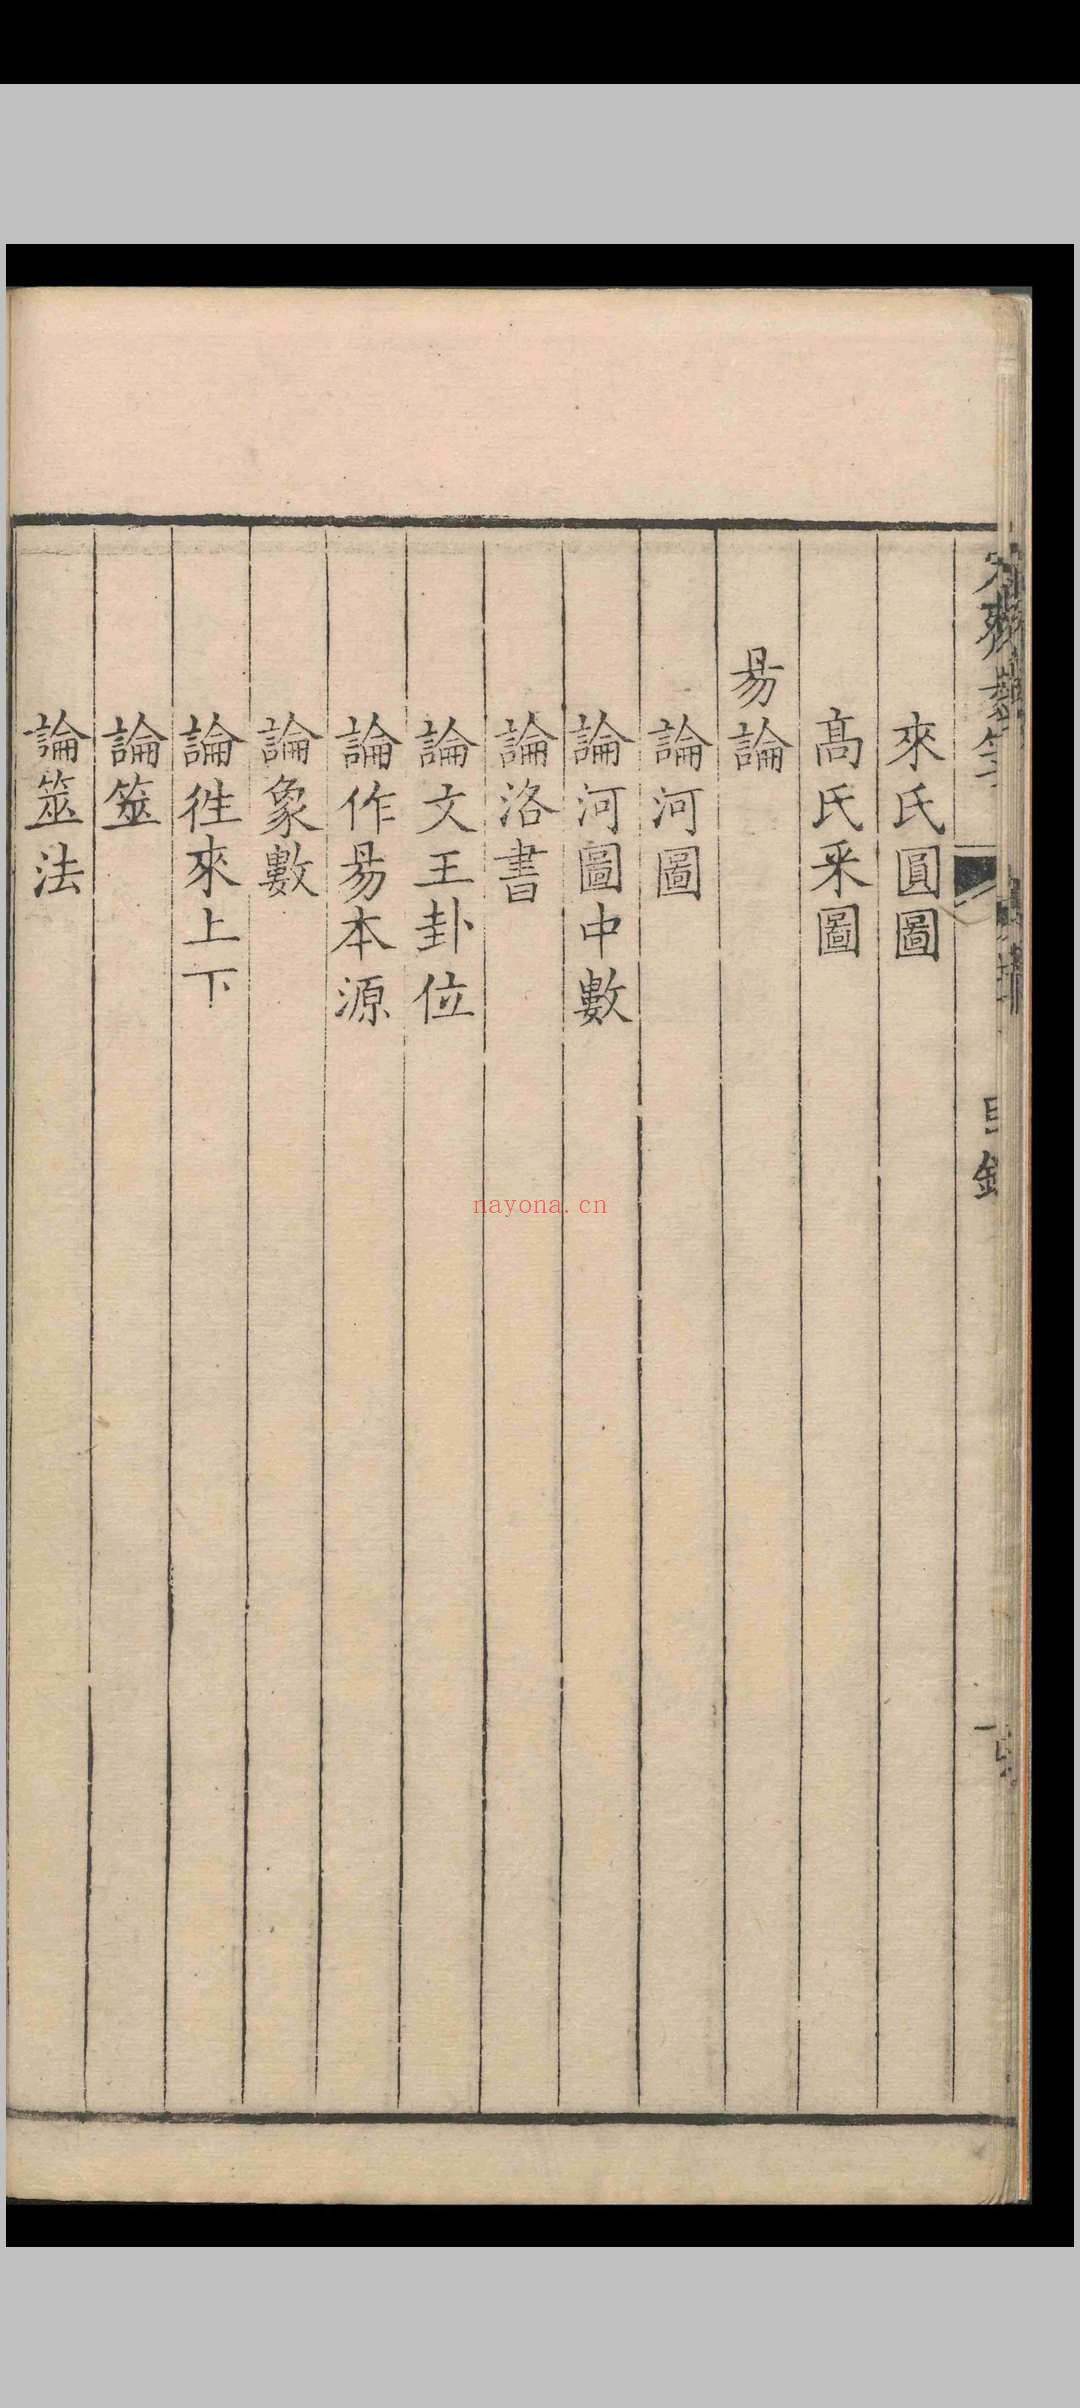 目錄
來氏圓圖
高氏釆圖
昜論
論河圖
論河圖中數
論洛書
論文王卦位
論作昜本源
論象數
論徃來上下
論筮
論筮法
nayona.cn